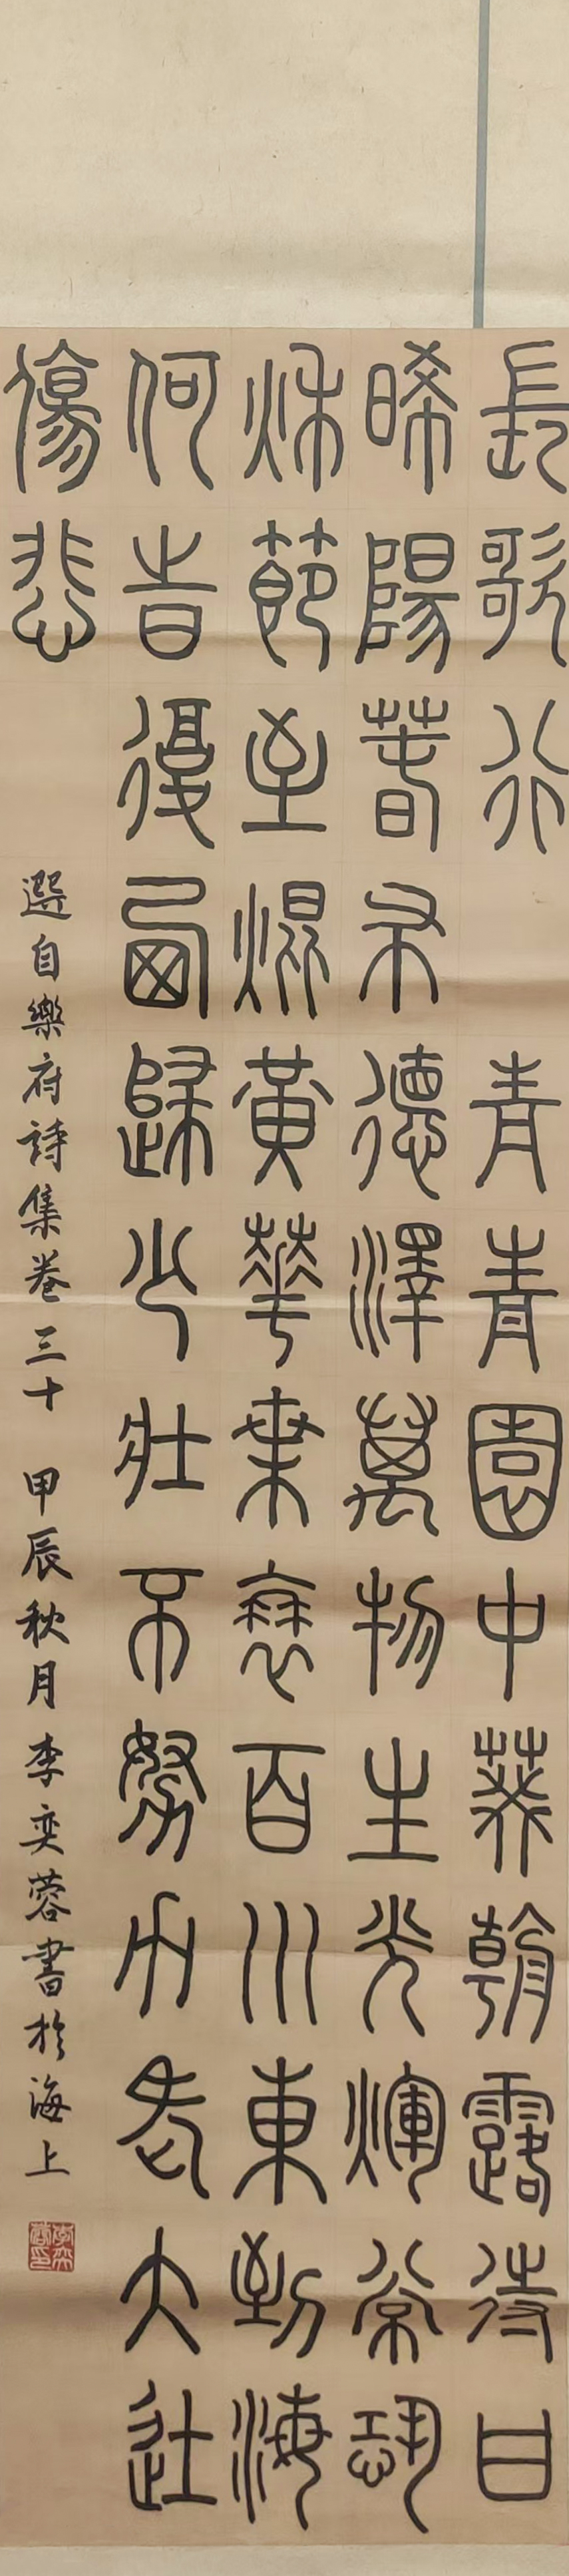 長歌行 青青園中葵朝露待日
晞陽春布德澤萬物生光輝常恐
秋節至焜黃華葉衰百川東到海
何時復西歸少壯不努力老大徒
傷悲
選自樂府詩集卷三十 甲辰秋月李奕蓉書於海上
李奕蓉印